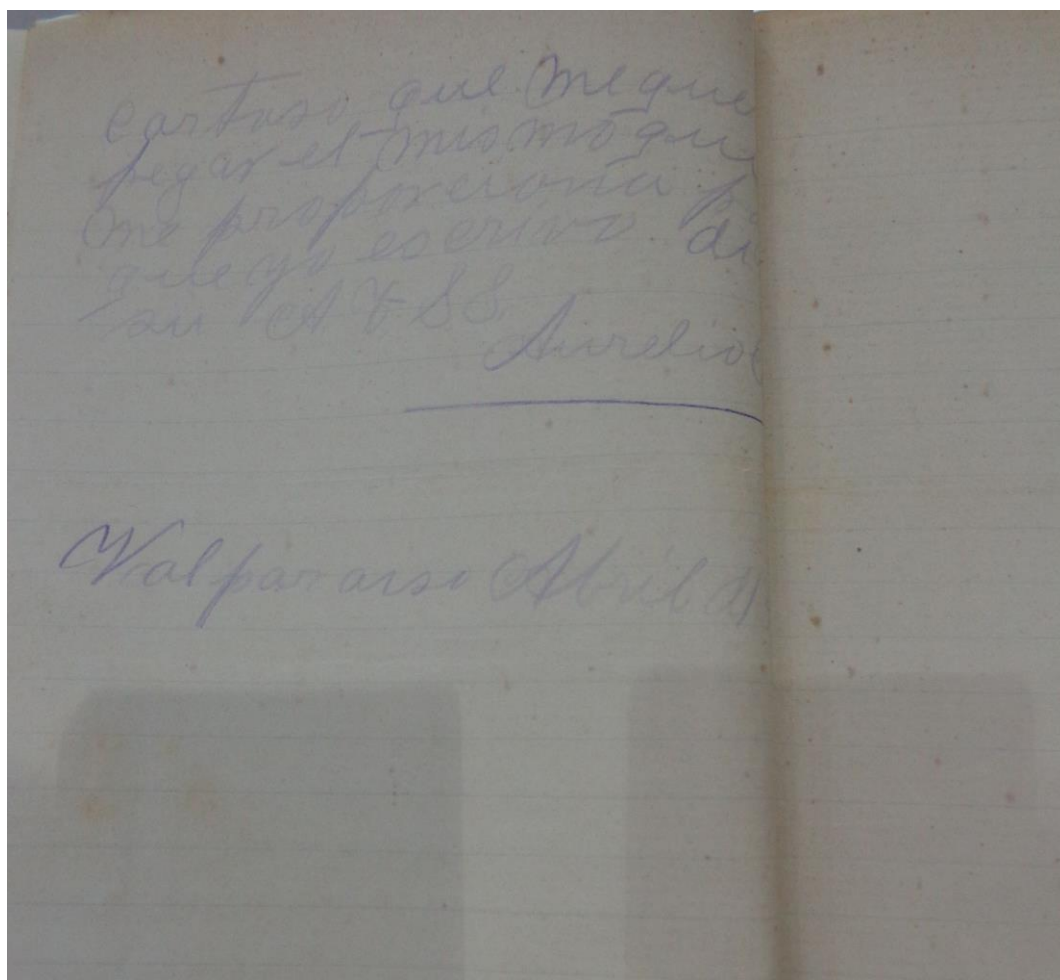 cartaso que me que
pegar el mismo que
me proporciona p
que yo escrivo. di
su A & S S
Aurelio
Valparaiso Abril